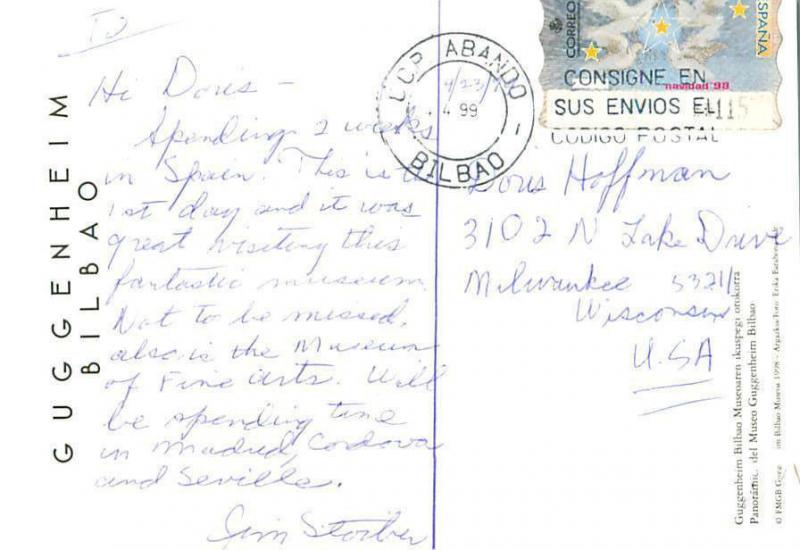 To
Hi Doris —
Spending 2 weeks
in Spain. This is
1st day and it was
great visiting this
fantastic museum.
Not to be missed,
also is the Museum
of Fine Arts. Will
be spending time
in Madrid, Cordova
and Seville.
Jim Stoiber
GUGGENHEIM
BILBAO
ABANDO
99
BILBAO
CORREO
ESPAÑA
navidad 98
CONSIGNE EN
SUS ENVIOS EL
CODIGO POSTAL
Doris Hoffman
3102 N Lake Drive
Milwaukee 53211
Wisconsin
U.SA
Guggenheim Bilbao Museoaren ikuspegi orokorra
del Museo Guggenheim Bilbao
© FMGB
Bilbao Museoa 1998 – Argazkia/Foto: Erika